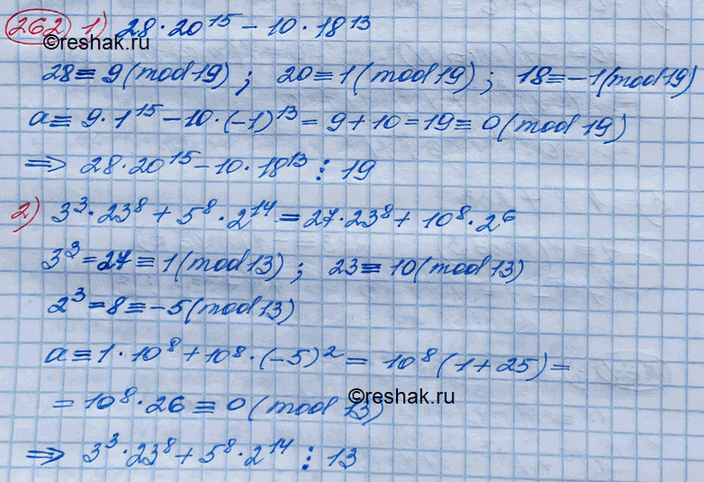 262 1) 28·20¹⁵ − 10·18¹³
©reshak.ru
28≡9(mod 19); 20≡1(mod 19); 18≡−1(mod 19)
a≡ 9·1¹⁵ − 10·(−1)¹³ = 9+10 = 19 ≡ 0(mod 19)
⇒ 28·20¹⁵ − 10·18¹³ ⋮ 19
2) 3³·23⁸ + 5⁸·2¹⁴ = 27·23⁸ + 10⁸·2⁶
3³ = 27 ≡ 1(mod 13); 23 ≡ 10(mod 13)
2³ = 8 ≡ −5(mod 13)
a ≡ 1·10⁸ + 10⁸·(−5)² = 10⁸(1+25) =
= 10⁸·26 ≡ 0(mod 13)
©reshak.ru
⇒ 3³·23⁸ + 5⁸·2¹⁴ ⋮ 13